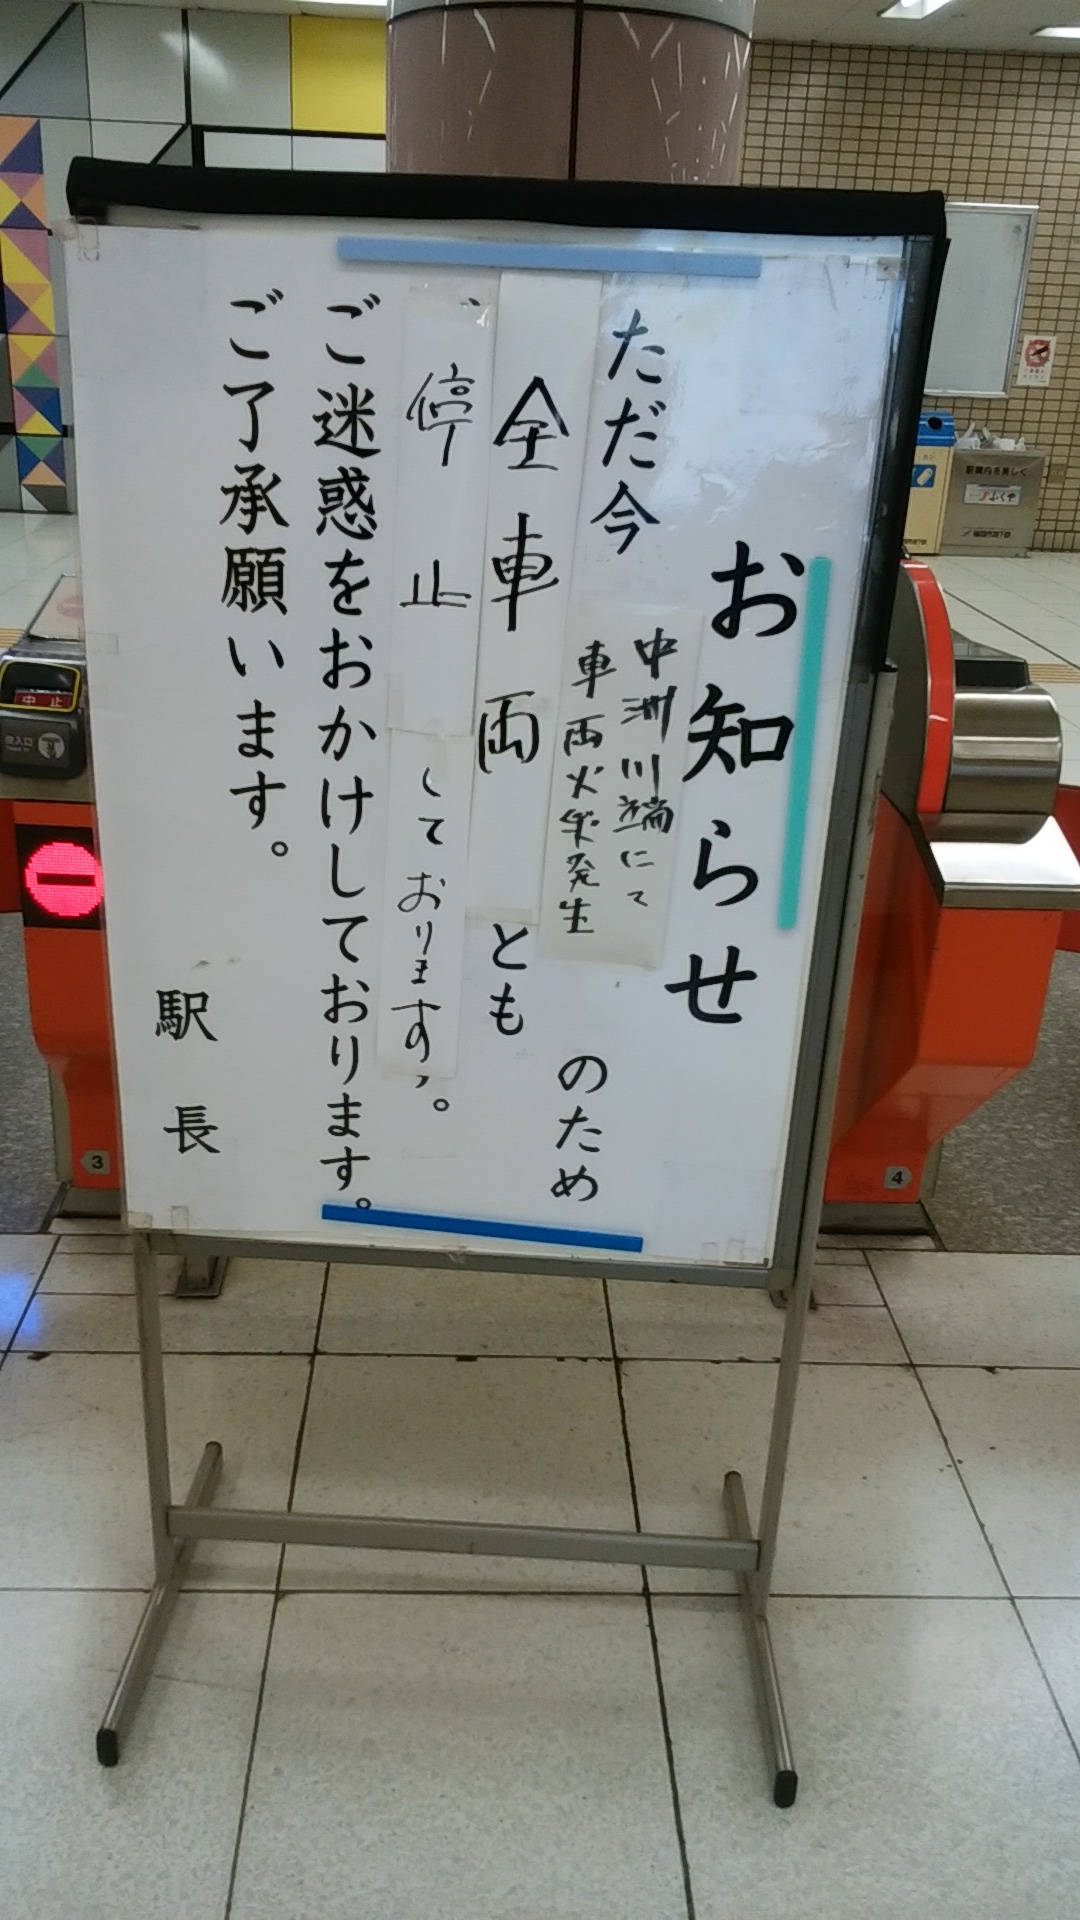 お知らせ
ただ今
中洲川端にて
車両火災発生
のため
全車両とも
停止しております。
ご迷惑をおかけしております。
ご了承願います。
駅長
中止
3
4
駅構内を美しく
ふくや